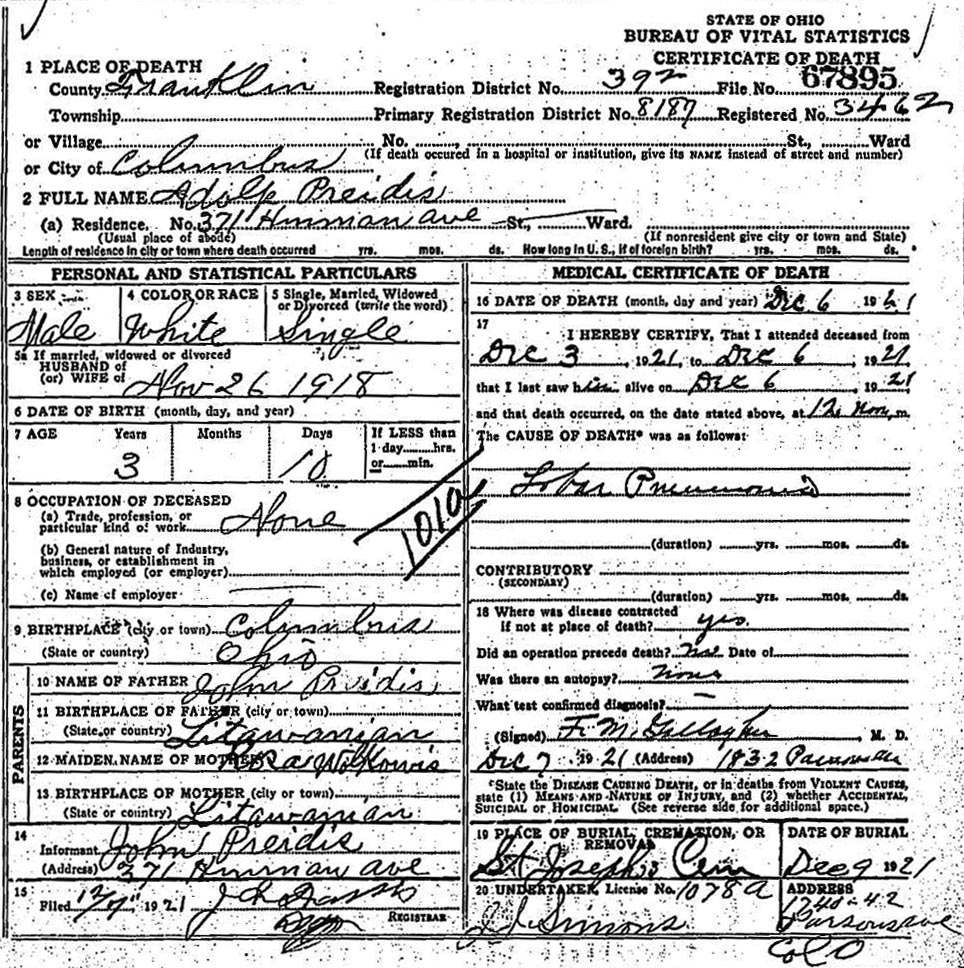 STATE OF OHIO
BUREAU OF VITAL STATISTICS
CERTIFICATE OF DEATH
1 PLACE OF DEATH
County Franklin Registration District No. 392 File No. 67895
Township Primary Registration District No. 8187 Registered No. 3462
or Village No. St., Ward
or City of Columbus (If death occured in a hospital or institution, give its NAME instead of street and number)
2 FULL NAME Adolp Preidis
(a) Residence. No. 371 Hinman ave St., Ward.
(Usual place of abode) (If nonresident give city or town and State)
Length of residence in city or town where death occurred yrs. mos. ds. How long in U. S., if of foreign birth? yrs. mos. ds.
PERSONAL AND STATISTICAL PARTICULARS
3 SEX 4 COLOR OR RACE 5 Single, Married, Widowed or Divorced (write the word)
Male White Single
5a If married, widowed or divorced
HUSBAND of
(or) WIFE of
Nov 26 1918
6 DATE OF BIRTH (month, day, and year)
7 AGE Years Months Days If LESS than
1 day hrs.
or min.
3 10
1010
8 OCCUPATION OF DECEASED
(a) Trade, profession, or
particular kind of work None
(b) General nature of Industry,
business, or establishment in
which employed (or employer)
(c) Name of employer
9 BIRTHPLACE (city or town) Columbus
(State or country) Ohio
PARENTS
10 NAME OF FATHER John Preidis
11 BIRTHPLACE OF FATHER (city or town)
(State or country) Litawanian
12 MAIDEN NAME OF MOTHER
13 BIRTHPLACE OF MOTHER (city or town)
(State or country) Litawanian
14
Informant John Preidis
(Address) 371 Hinman ave
15
Filed 1921
REGISTRAR
MEDICAL CERTIFICATE OF DEATH
16 DATE OF DEATH (month, day and year) Dec 6 1921
17
I HEREBY CERTIFY, That I attended deceased from
Dec 3, 1921, to Dec 6, 1921
that I last saw him alive on Dec 6, 1921
and that death occurred, on the date stated above, at 12 noon m.
The CAUSE OF DEATH* was as follows:
Lobar Pneumonia
(duration) yrs. mos. ds.
CONTRIBUTORY
(SECONDARY)
(duration) yrs. mos. ds.
18 Where was disease contracted
if not at place of death? yes.
Did an operation precede death? no Date of
Was there an autopsy? none
What test confirmed diagnosis?
(Signed) F. M. Gallagher M. D.
Dec 7, 1921 (Address) 1832
*State the DISEASE CAUSING DEATH, or in deaths from VIOLENT CAUSES,
state (1) MEANS AND NATURE OF INJURY, and (2) whether ACCIDENTAL,
SUICIDAL or HOMICIDAL. (See reverse side for additional space.)
19 PLACE OF BURIAL, CREMATION, OR REMOVAL DATE OF BURIAL
St Joseph's Cem Dec 9 1921
20 UNDERTAKER, License No. 1078A ADDRESS
Simons
Parsons ave
Col O